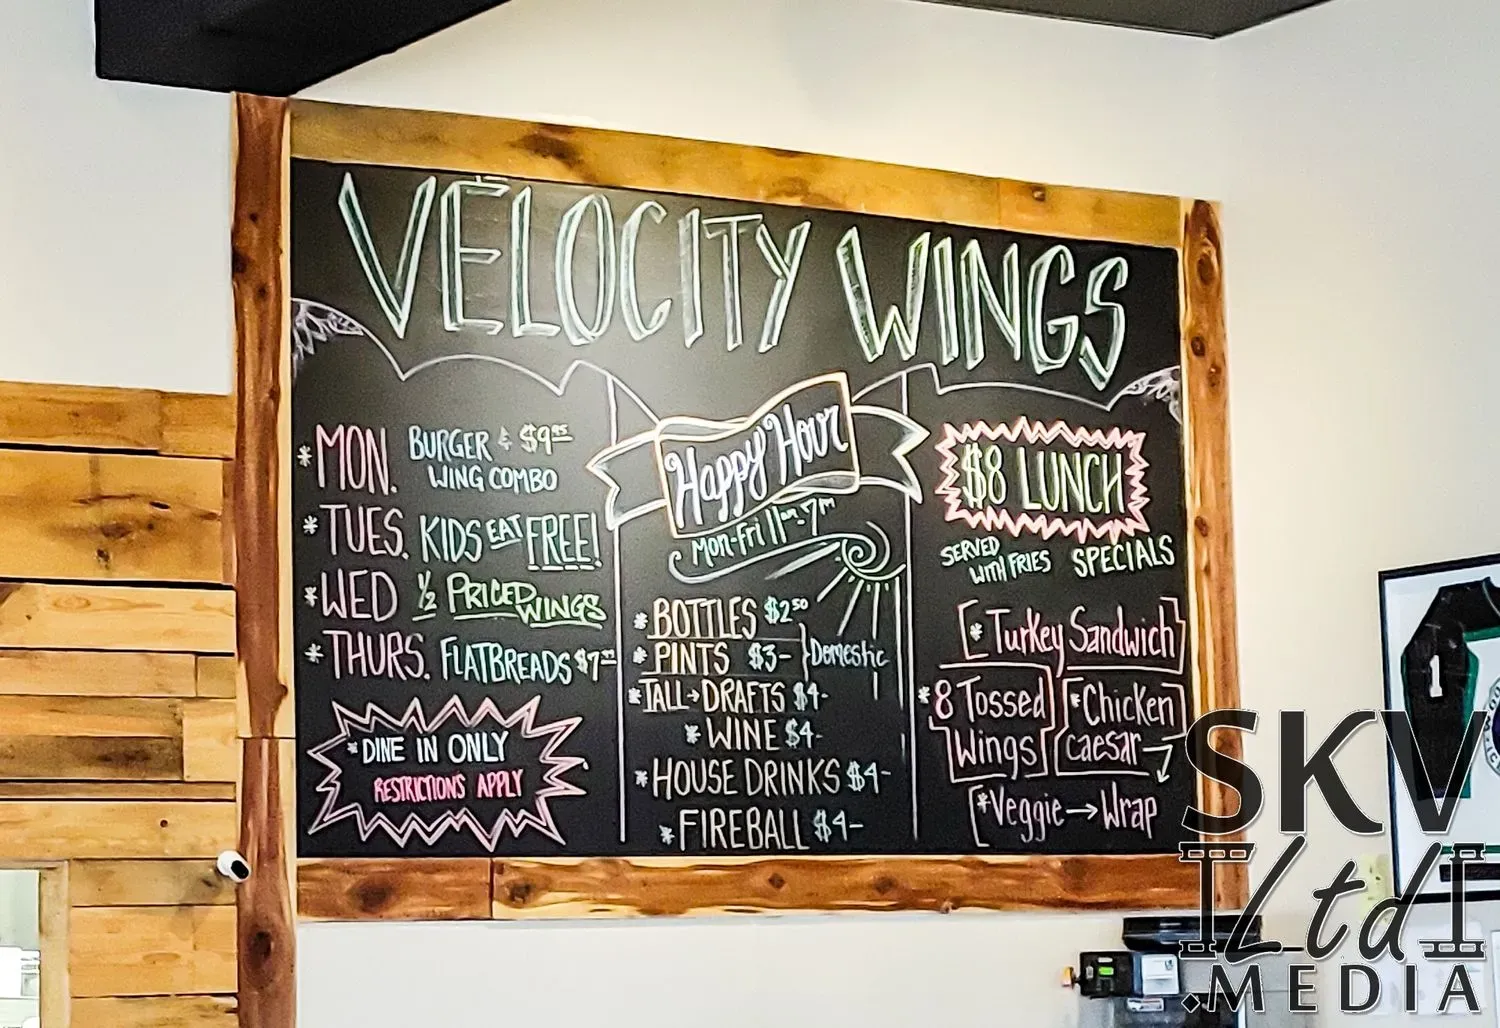 VELOCITY WINGS
*MON. BURGER & $9.95
WING COMBO
*TUES. KIDS EAT FREE!
*WED 1/2 PRICED WINGS
*THURS. FLATBREADS
*DINE IN ONLY
RESTRICTIONS APPLY
Happy Hour
Mon-Fri 11am-7pm
*BOTTLES $2.50
*PINTS $3- } Domestic
*TALL→DRAFTS $4-
*WINE $4-
*HOUSE DRINKS $4-
*FIREBALL $4-
$8 LUNCH
SERVED WITH FRIES
SPECIALS
*Turkey Sandwich
*8 Tossed
Wings
*Chicken
caesar→
*Veggie→Wrap
1
SKV
Ltd
.MEDIA